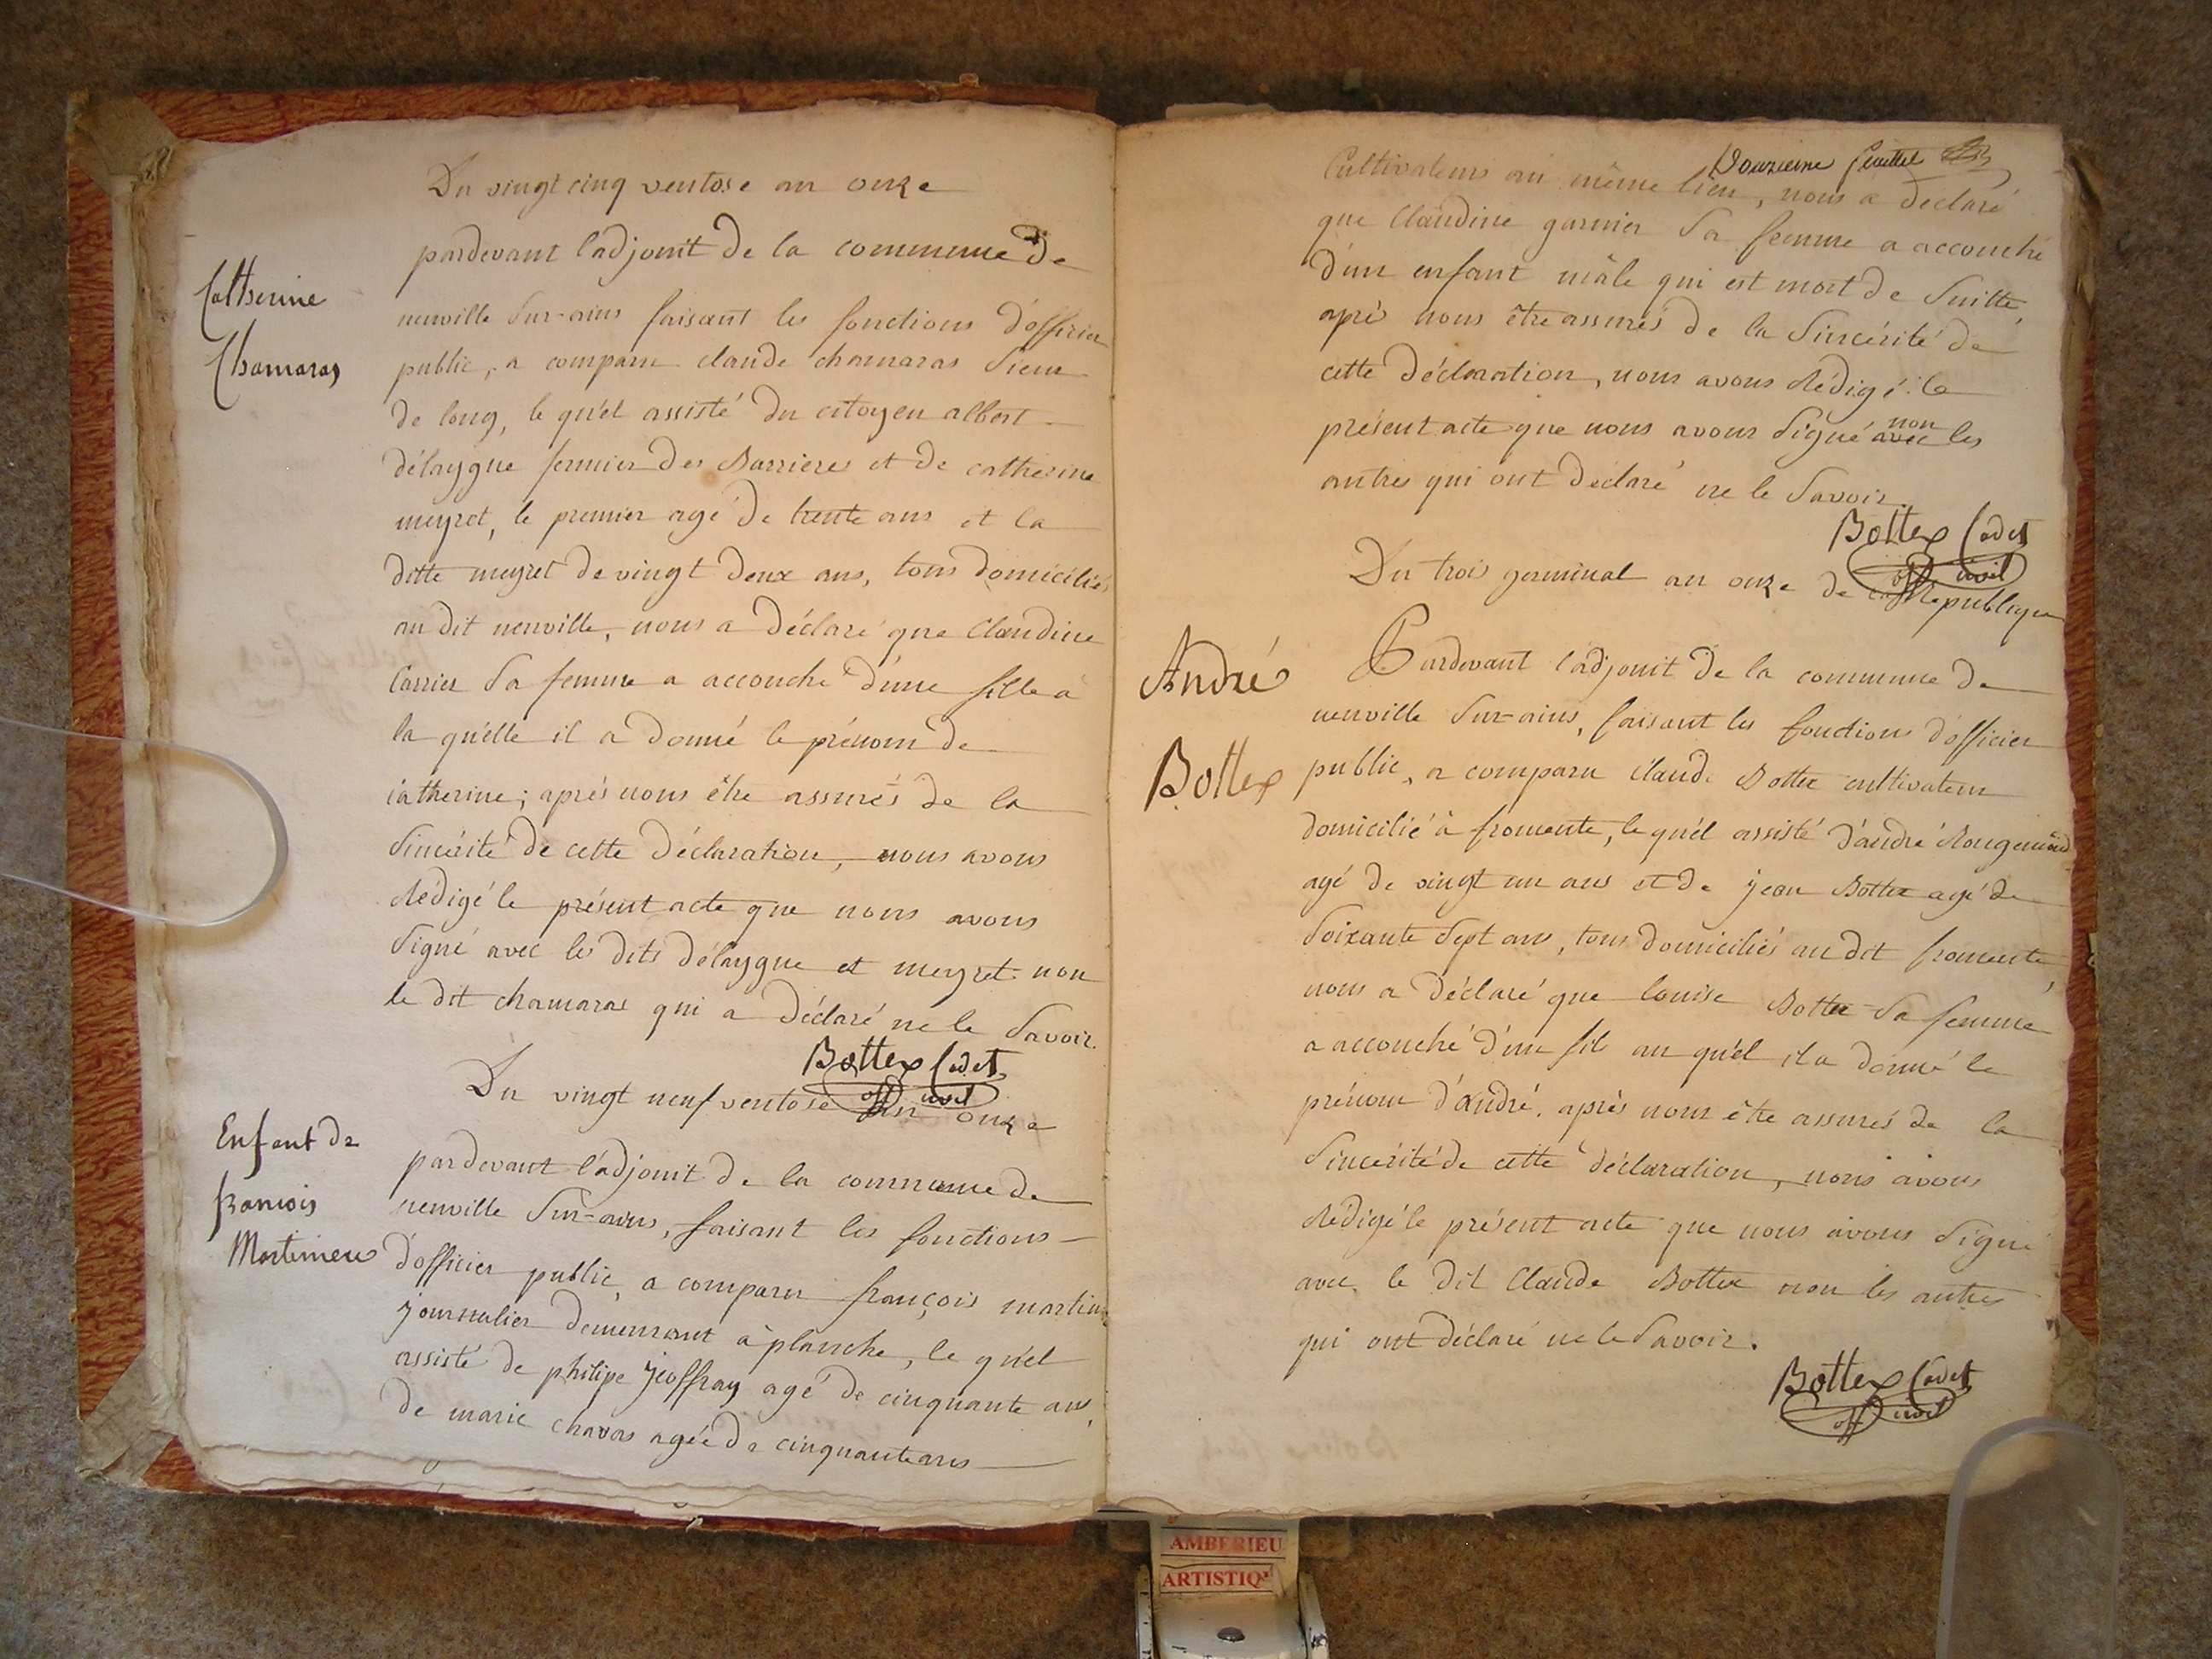 Du vingt cinq ventose an onze
pardevant l'adjoint de la commune de
Catherine
Chamaras
neuville Sur-ains faisant les fonctions d'officier
public, a comparu claude chamaras Sieur
de long, le qu'el assisté du citoyen albert
délaygue fermier des Barrieres et de catherine
meyret, le premier agé de trente ans et la
ditte meyret de vingt deux ans, tous domiciliés
au dit neuville, nous a déclaré que Claudine
Carrier Sa femme a accouché d'une fille à
la qu'elle il a donné le prénom de
catherine; après nous être assurés de la
Sincérité de cette déclaration, nous avons
rédigé le présent acte que nous avons
Signé avec les dits délaygue et meyret non
le dit chamaras qui a déclaré ne le Savoir.
Bottex Cadet
off civil
Du vingt neuf ventose an onze
Enfant de
francois
Martiniere
pardevant l'adjoint de la commune de
neuville Sur-ains, faisant les fonctions
d'officier public, a comparu françois martin
journalier demeurant à planche, le qu'el
assisté de philipe jeoffray agé de cinquante ans,
de marie chavas agée de cinquante ans
Douzieme feuillet
Cultivateurs au même lieu, nous a déclaré
que Claudine garnier Sa femme a accouché
d'un enfant mâle qui est mort de Suitte,
après nous être assurés de la Sincérité de
cette déclaration, nous avons rédigé le
présent acte que nous avons Signé avec non les
autres qui ont déclaré ne le Savoir.
Bottex Cadet
off civil
Du trois germinal an onze de la République
André
Bottex
Pardevant l'adjoint de la commune de
neuville Sur-ains, faisant les fonctions d'officier
public, a comparu Claude Bottex cultivateur
domicilié à fromente, le qu'el assisté d'andré Rougemond
agé de vingt un ans et de jean Bottex agé de
Soixante Sept ans, tous domiciliés au dit fromente,
nous a déclaré que louise Bottex Sa femme
a accouché d'un fils au qu'el il a donné le
prénom d'andré. après nous être assurés de la
Sincérité de cette déclaration, nous avons
rédigé le présent acte que nous avons Signé
avec le dit Claude Bottex non les autres
qui ont déclaré ne le Savoir.
Bottex Cadet
off civil
AMBERIEU
ARTISTIQ